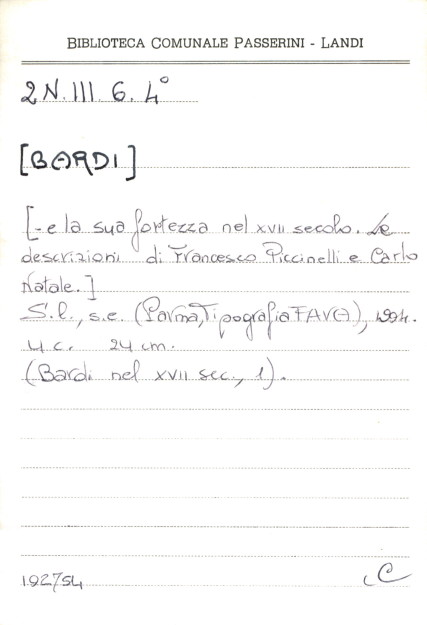 BIBLIOTECA COMUNALE PASSERINI - LANDI
2N.III.6.4°
[BARDI]
[- e la sua fortezza nel XVII secolo. Le
descrizioni di Francesco Piccinelli e Carlo
Natale.]
S.l., s.e. (Parma, Tipografia FAVA), 1994.
4 c. 24 cm.
(Bardi nel XVII sec., 1).
192754